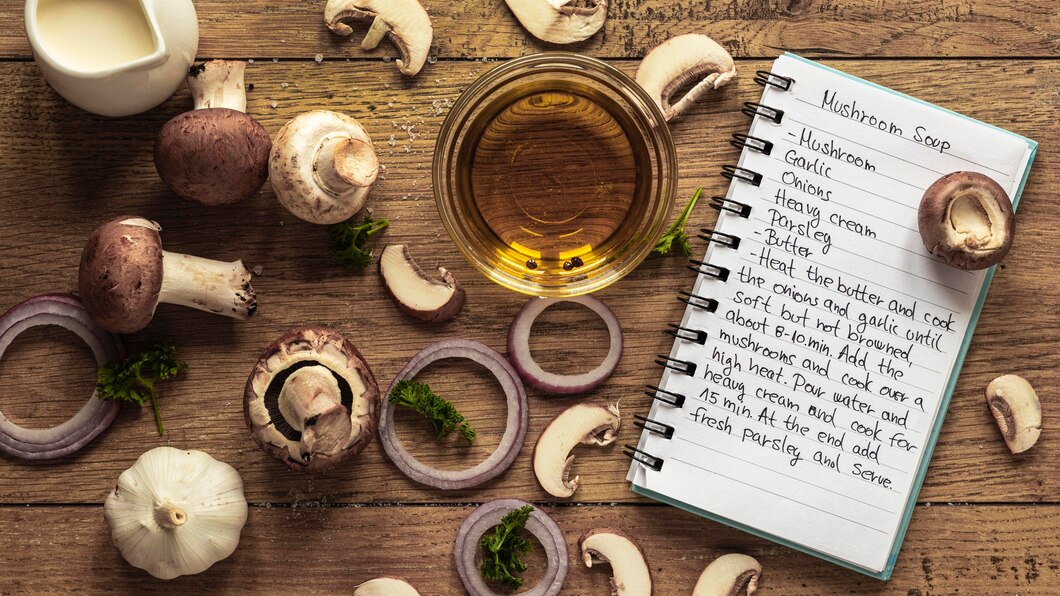 Mushroom Soup
- Mushroom
Garlic
Onions
Heavy cream
Parsley
- Butter
- Heat the butter and cook
the onions and garlic until
soft but not browned,
about 8-10 min. Add the
mushrooms and cook over a
high heat. Pour water and
heavy cream and cook for
15 min. At the end add
fresh parsley and serve.